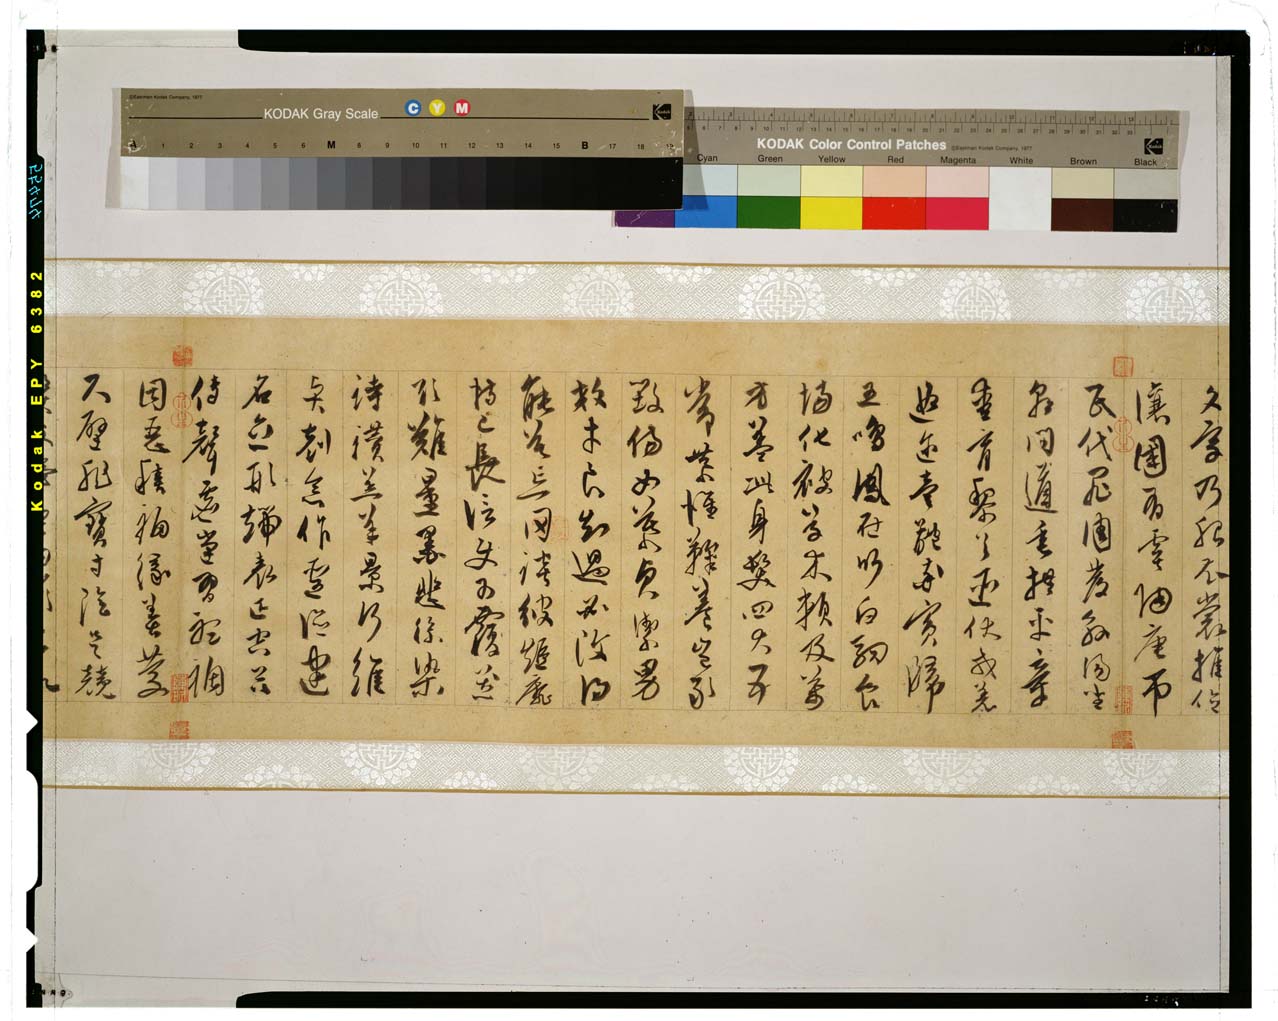 文字乃服衣裳推位
讓國有虞陶唐弔
民伐罪周發殷湯坐
朝問道垂拱平章
愛育黎首臣伏戎羌
遐邇壹體率賓歸
王鳴鳳在竹白駒食
場化被草木賴及萬
方蓋此身髮四大五
常恭惟鞠養豈敢
毀傷女慕貞潔男
效才良知過必改得
能莫忘罔談彼短靡
恃己長信使可覆器
欲難量墨悲絲染
詩讚羔羊景行維
賢剋念作聖德建
名立形端表正空谷
傳聲虛堂習聽禍
因惡積福緣善慶
尺璧非寶寸陰是競
©Eastman Kodak Company, 1977
KODAK Gray Scale
C Y M
Kodak
A 1 2 3 4 5 6 M 8 9 10 11 12 13 14 15 B 17 18 19
KODAK Color Control Patches ©Eastman Kodak Company, 1977
Kodak
Cyan Green Yellow Red Magenta White Brown Black
Kodak EPY 6382